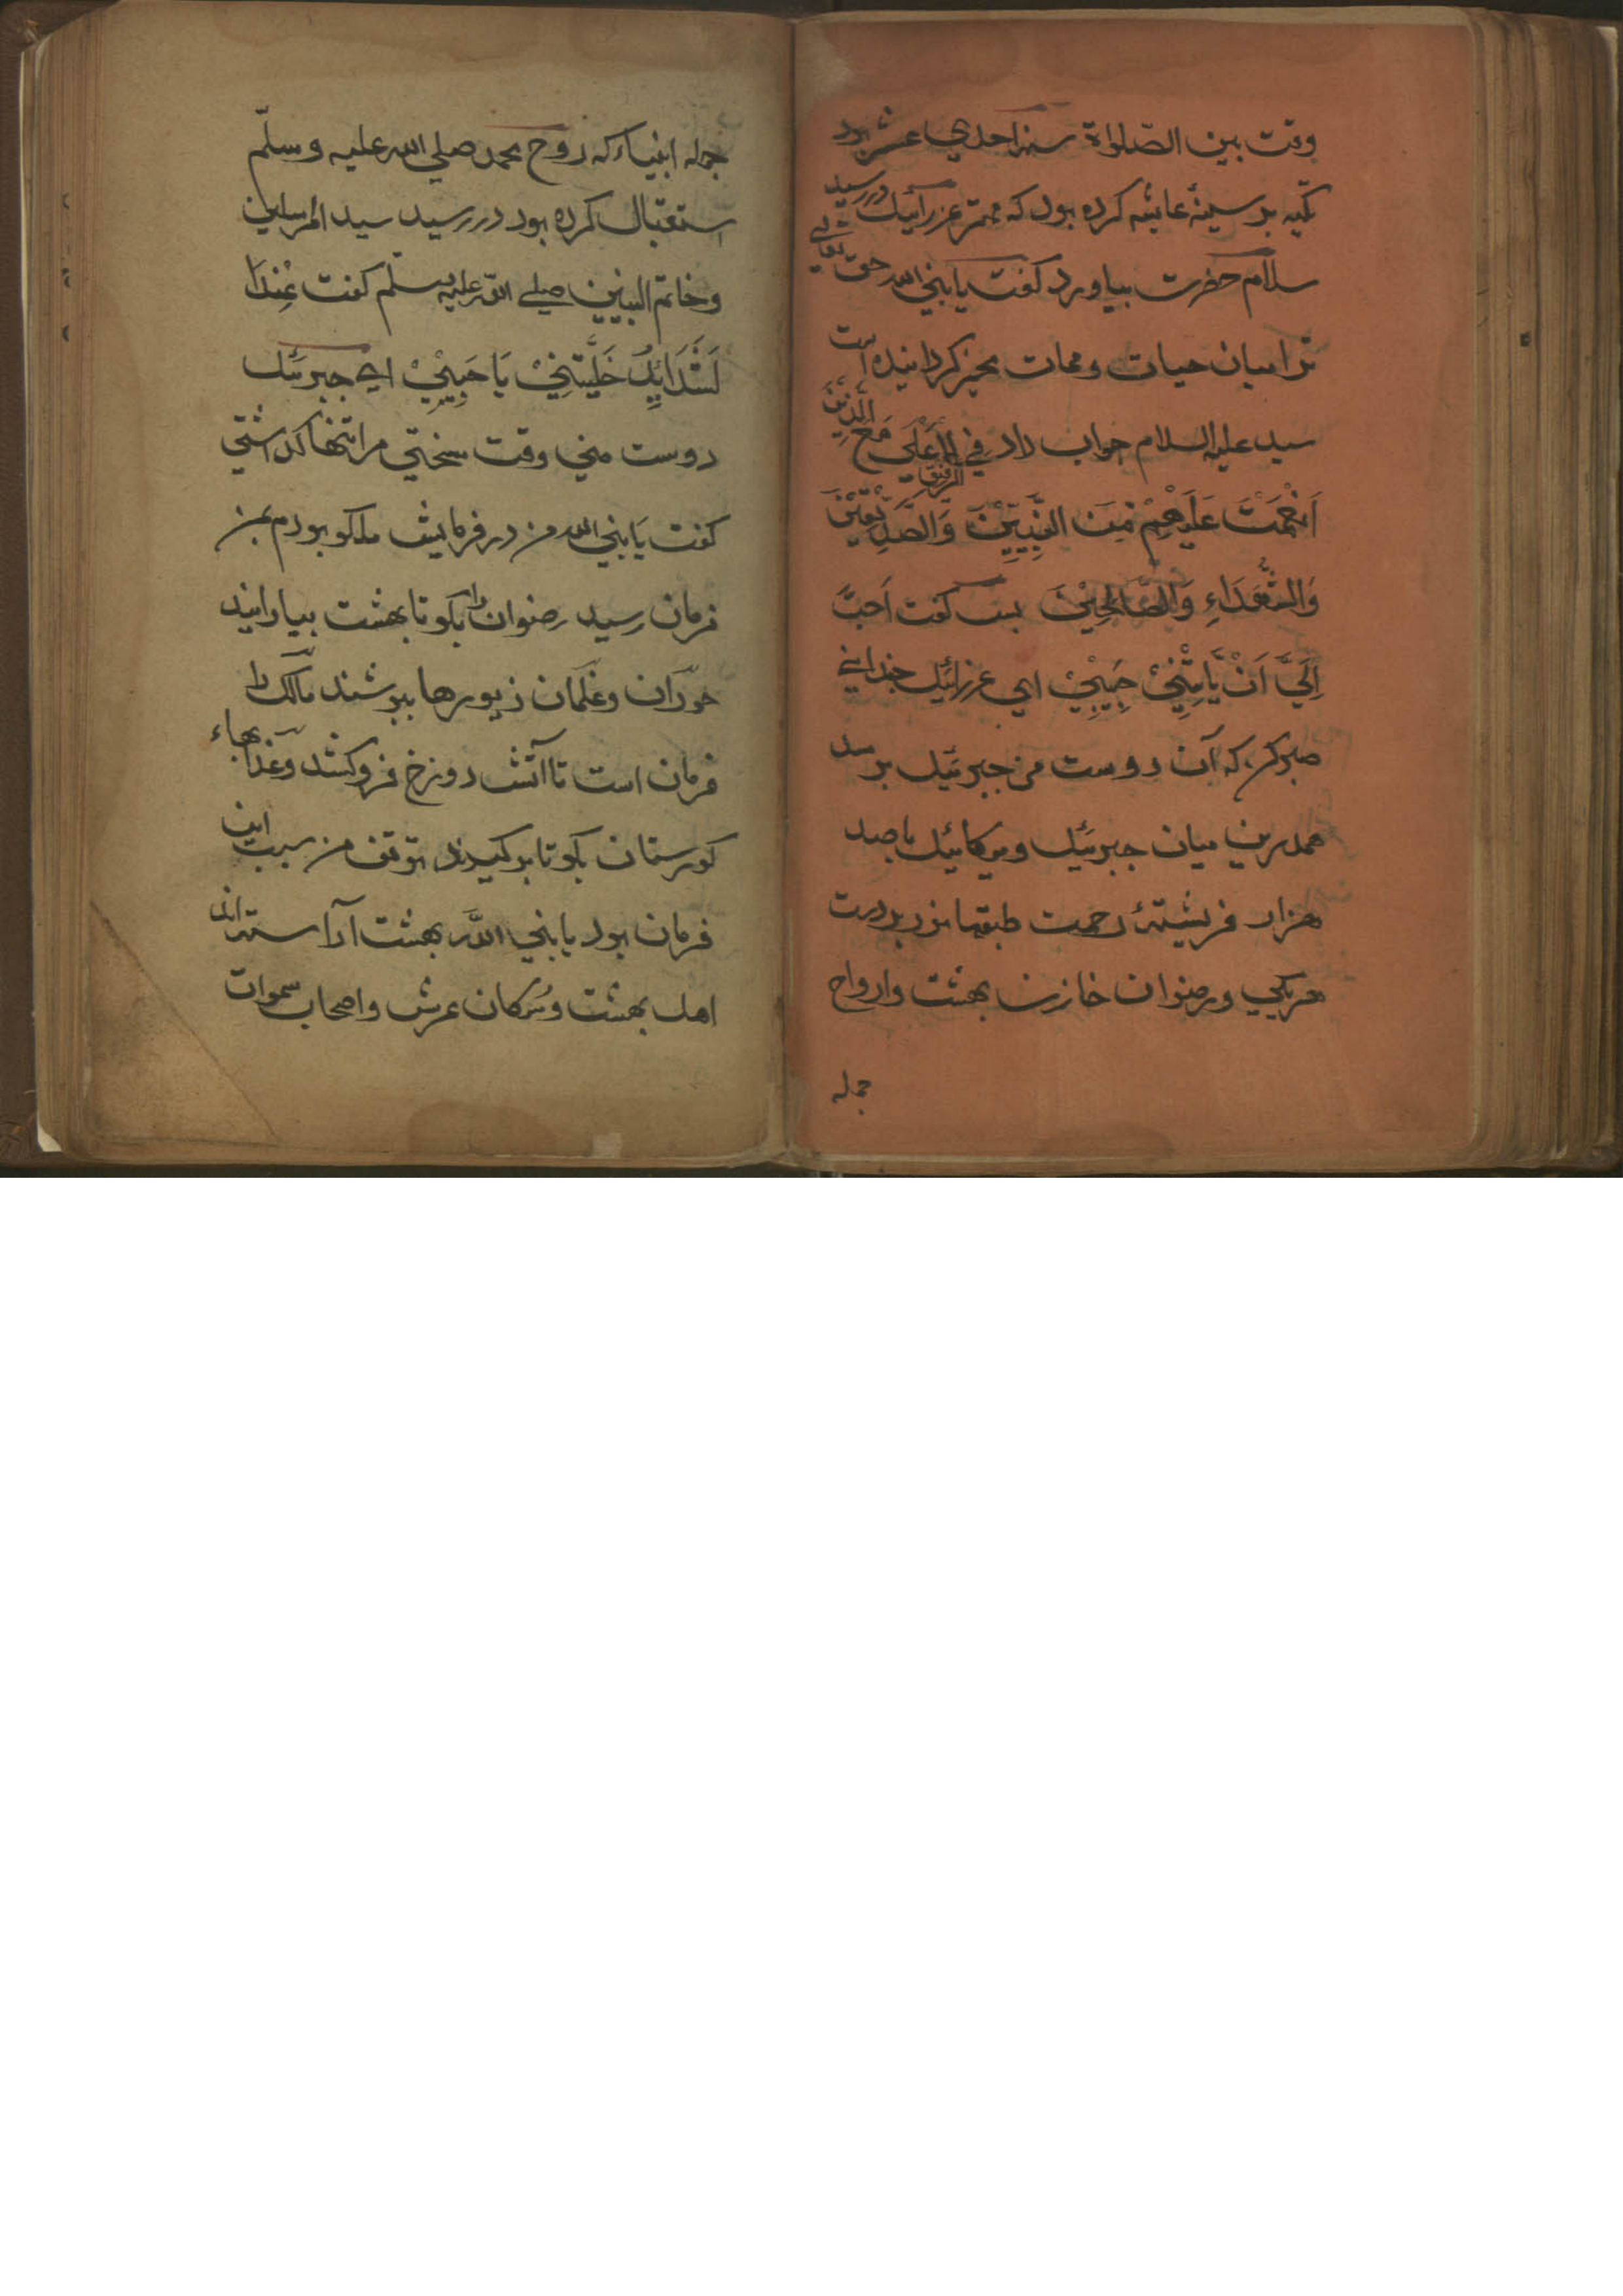 وقت بین الصّلواة سنه احدي عشر بود
تکیه بر سینهٔ عایشه کرده بود که مهتر عزرائیل در رسید
سلام حضرت بیاورد کفت یا نبي الله حق تعالی
ترا میان حیات و ممات مخیر کردانیده است
سید علیه السلام جواب داد في الرفیق الاَعْلَی مَعَ الَّذِیْنَ
اَنْعَمْتَ عَلَیْهِمْ مِّنَ النَّبِیِّیْنَ وَالصِّدِّیْقِیْنَ
وَالشُّهَدَاءِ وَالصَّالِحِیْنَ پس کفت اَحَبَّ
اِلَيَّ اَنْ یَّاتِیْنِيْ حَبِیْبِيْ اي عزرائیل چنداني
صبر کن که آن دوست من جبرئیل برسد
همدرین میان جبرئیل و میکائیل با صد
هزار فریشتهٔ رحمت طبقها نور بر دست
هر یکي و رضوان خازن بهشت و ارواح
جمله
جمله انبیاء که روح محمد صلي الله علیه وسلّم
استقبال کرده بود در رسید سید المرسلین
و خاتم النبیین صلی الله علیه وسلّم کفت عِنْدَا
لشَّدَایِدِ خَلَّیْتَنِيْ یَا حَبِیْبِيْ اي جبرئیل
دوست مني وقت سختي مرا تنها کذاشتي
کفت یَا نبي الله من در فرمایش ملکو بودم بمن
فرمان رسید رضوان را بکو تا بهشت بیارایند
حوران و غلمان زیورها بپوشند مالک را
فرمان است تا آتش دوزخ فروکشد و عذابهاء
کورستان بکو تا برکیرند توقف من سبب این
فرمان بود یا نبي الله بهشت آراسته اند
اهل بهشت و سُکان عرش و اصحاب سموات